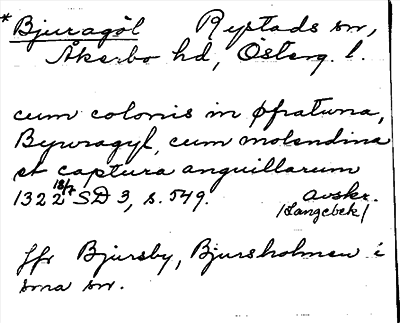 * Bjuragöl Rystads sn,
Åkerbo hd, Österg. l.
cum colonis in øfratuna,
Bywragyl, cum molendina
et captura anguillarum
1322 18/7 SD 3, s. 549. avskr.
/Langebek/
Jfr Bjursby, Bjursholmen i
sma sn.